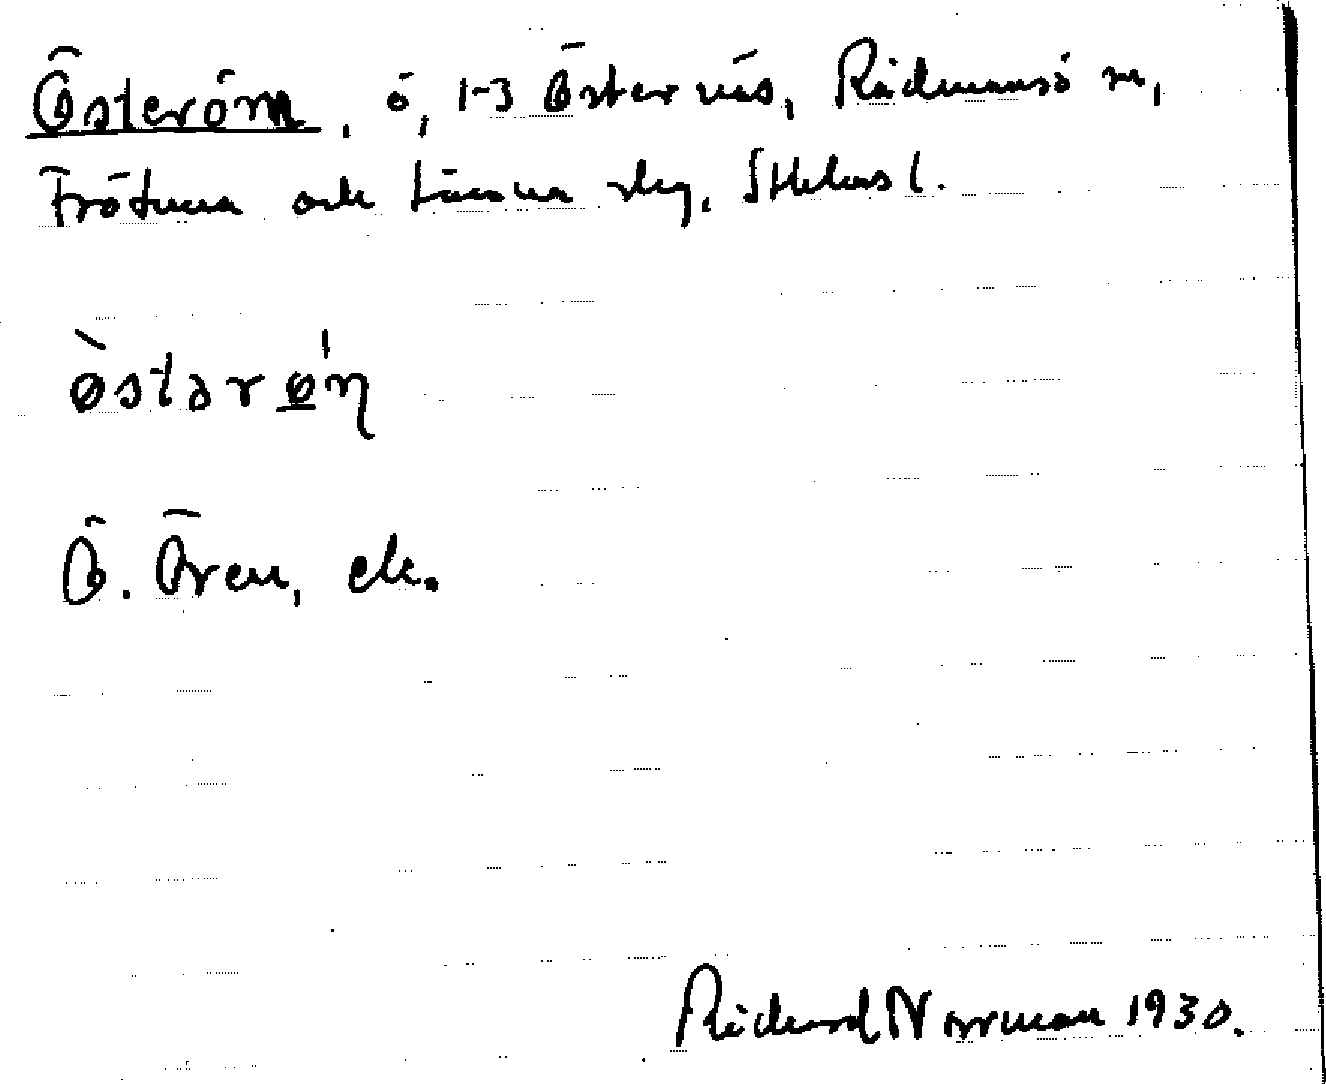 Österöm, ö, 1-3 Östernäs, Rådmansö sn,
Frötuna och Länna slg, Sthlms l.
òstərø̱'n
Ö. Ören, ek.
Rickard Norrman 1930.